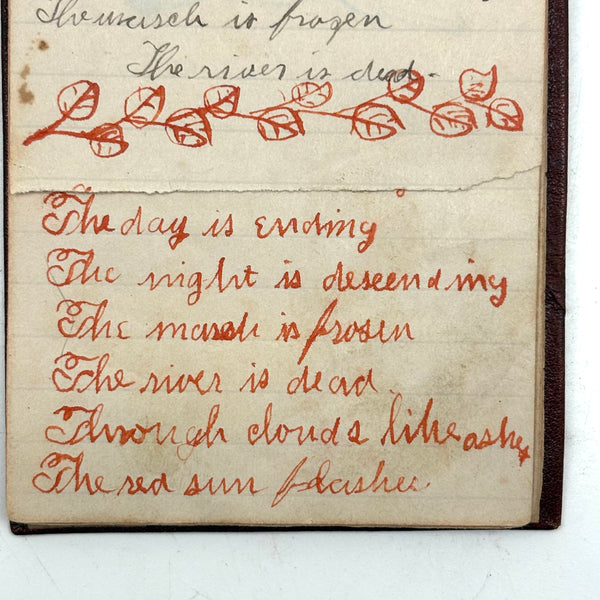 The marsch is frozen
The river is dead.
The day is ending
The night is descending
The marsh is frosen
The river is dead.
Through clouds like ashes
The red sun flashes